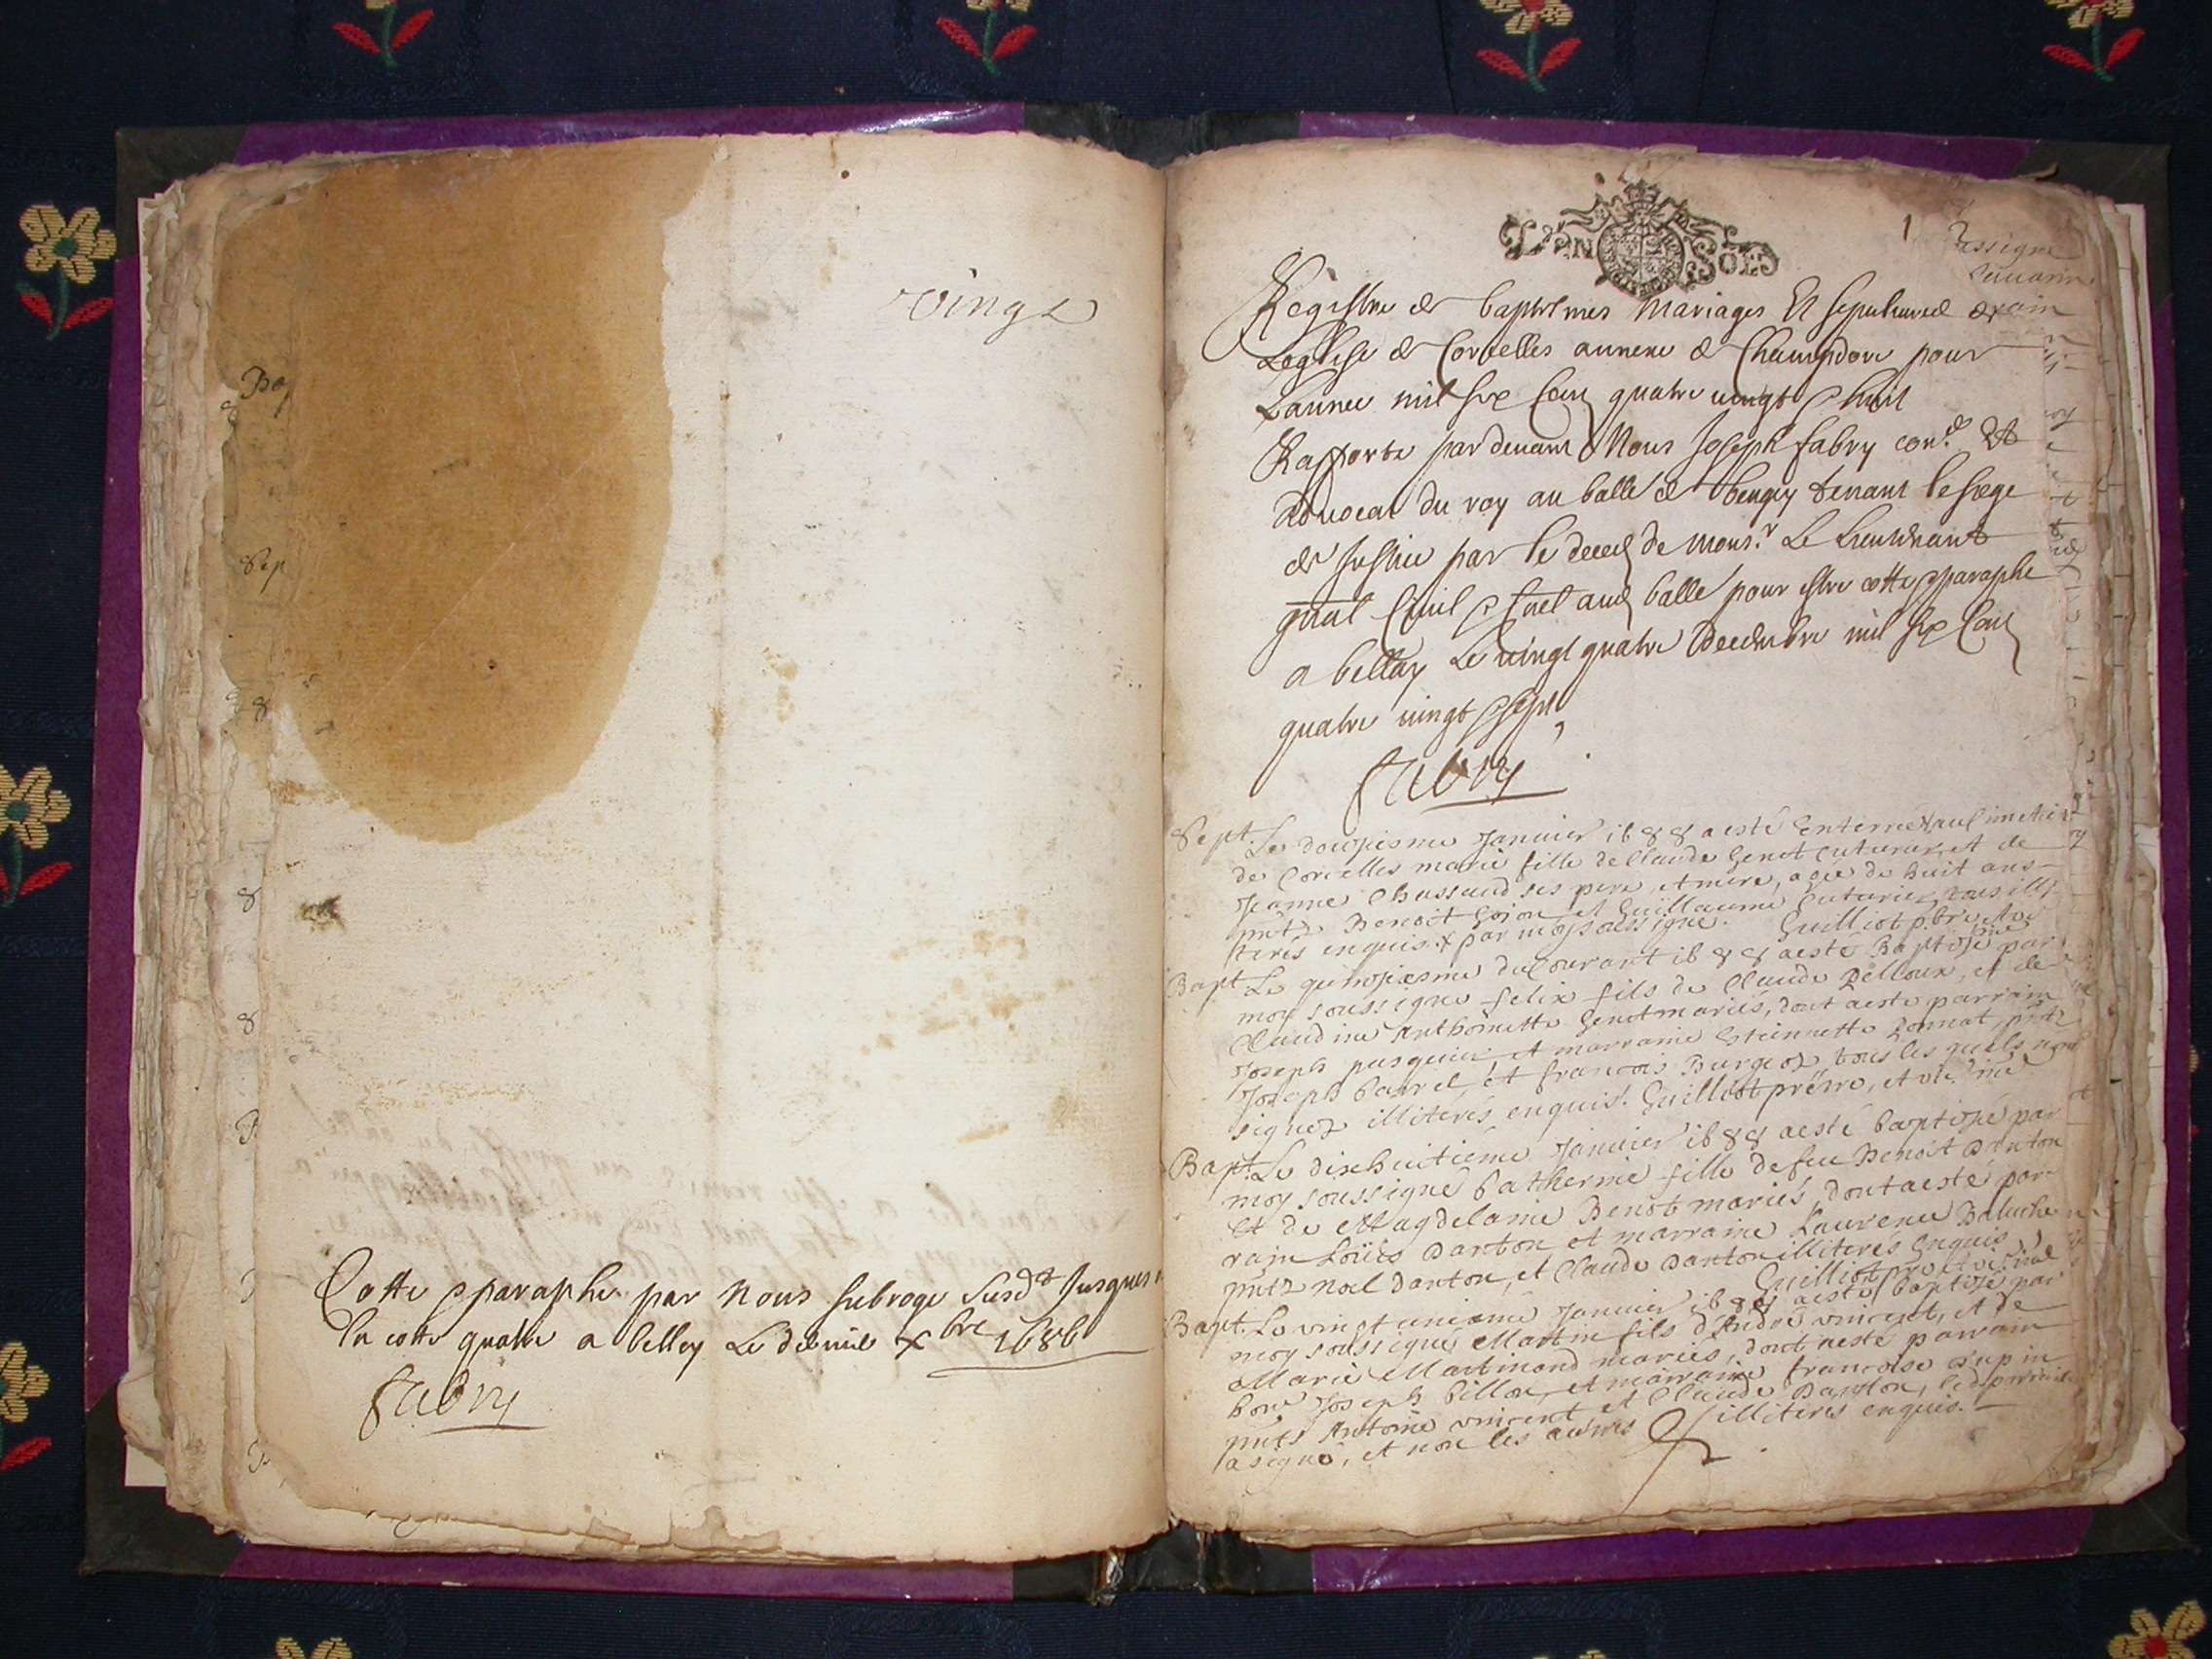 vingt
Cotte & paraphe par Nous subroge susd.t Jusques a
la cotte quatre a belley Le
xbre 1686
Fabry
SOLS
1
Registre de baptesmes mariages Et sepultures de
Leglise de Corcelles annexe de Champdore pour
Lannee mil six Cent quatre vingt & huit
Rapporte par devant Nous Joseph fabry con.er &
advocat du roy au balle de beugey tenant le siege
de Justice par le deced de Mons.r Le Lieutenant
gnal Civil & Crnel aud balle pour estre cotte & paraphe
a belley Le vingt quatre decembre mil six Cent
quatre vingt & sept
Fabry
Sept. Le douziesme Janvier 1688 a esté Enterrée au cimetiere
de Corcelles marie fille de Claude Genet cuturier, et de
Jeanne Chassaud ses pere, et mere, agée de huit ans
pntz Benoit Gojon et Guillaume Cuturier tous illi-
terés enquis. par moy soussigné. Guilliot pbre et vic
Bapt Le quinziesme du Courant 1688 a esté Baptisé par
moy soussigné felix fils de Claude Belloux, et de
Claudine Anthoinette Genet mariés, dont a esté parrain
Joseph pasquier, et marraine Estiennette Bonnat, pntz
Joseph Carrel, et francois Burgoz tous les quels non
signez illiterés enquis. Guilliot prêtre, et vic
Bapt. Le dixhuitieme Janvier 1688 a esté baptisé par
moy soussigné Catherine fille de feu Benoit Danton
et de Magdelaine Benot mariés, dont a esté par-
rain Loüis Danton et marraine Laurence Baluche
pntz noel Danton, et Claude Danton illiterés Enquis
Guilliot
Bapt. Le vingt uniéme Janvier 1688 a esté baptisé par
moy soussigné Martin fils d'André vincent, et de
Marie Martinand mariés, dont a esté parrain
hon.e Joseph Billon, et marraine francoise
pnts Antoine vincent et Claude Danton,
a signé, et non les autres illiterés enquis.